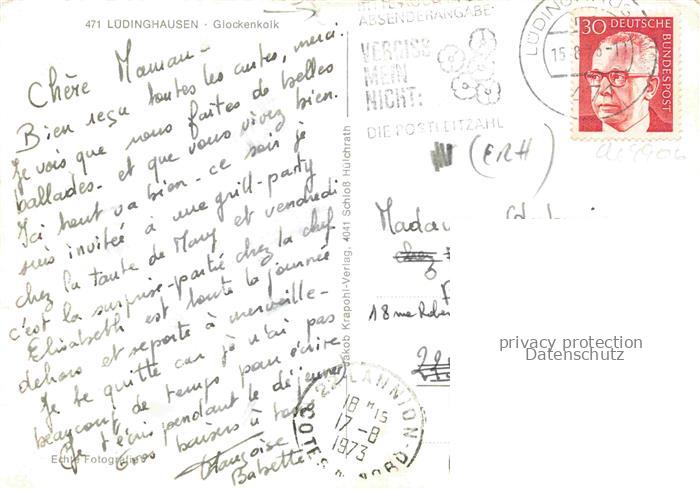 471 LÜDINGHAUSEN · Glockenkolk
Chère Maman -
Bien reçu toutes les cartes, merci.
Je vois que vous faites de belles
ballades - et que vous vivez bien.
Ici tout va bien - ce soir je
suis invitée à une grill-party
chez la tante de Mary et vendredi
c'est la surprise-partie chez la chef
Elisabeth est toute la journée
dehors et se porte à merveille -
Je te quitte car je n'ai pas
beaucoup de temps pour écrire
(Je t'écris pendant le déjeuner
Gros baisers à tous
Françoise
Babette
Echte Fotografie
Jakob Krapohl-Verlag, 4041 Schloß Hülchrath
ABSENDERANGABE
VERGISS
MEIN
NICHT:
DIE POSTLEITZAHL
LÜDINGHAUSEN
15.8.73-11
471
30 DEUTSCHE
BUNDESPOST
(ERH)
Madame
chez
18 rue
22
22 LANNION
18 H 15
17-8
1973
COTES DU NORD
privacy protection
Datenschutz